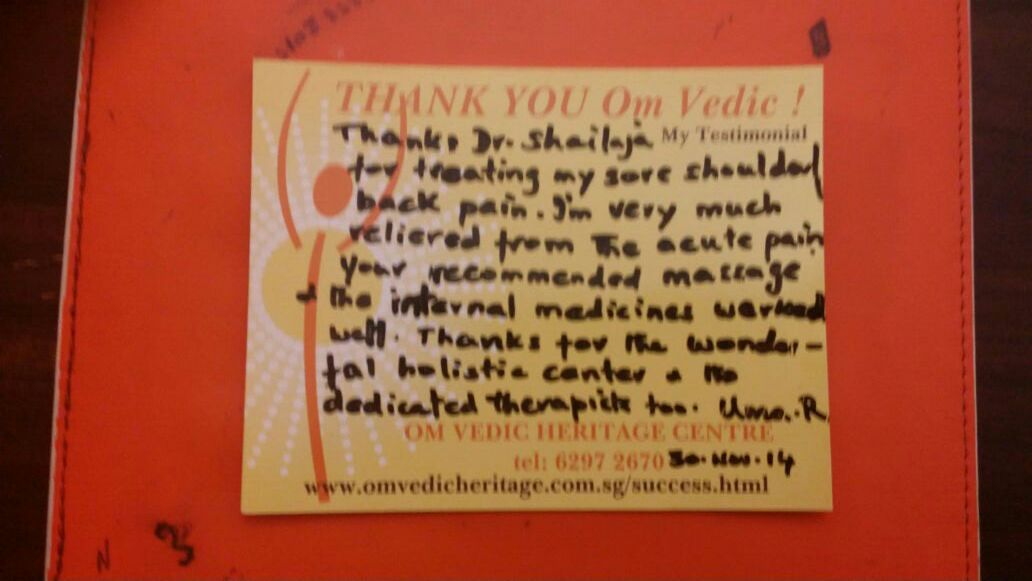 THANK YOU Om Vedic !
Thanks Dr. Shailaja My Testimonial
for treating my sore shoulder/
back pain. I'm very much
relieved from the acute pain.
Your recommended massage
& the internal medicines worked
well. Thanks for the wonder-
ful holistic center & the
dedicated therapists too. Uma. R
OM VEDIC HERITAGE CENTRE
tel: 6297 2670 30.Nov.14
www.omvedicheritage.com.sg/success.html